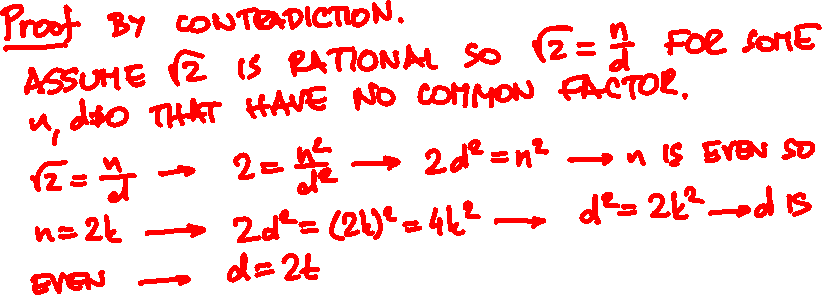 Proof BY CONTRADICTION.
ASSUME √2 IS RATIONAL SO √2 = n/d FOR SOME
n, d≠0 THAT HAVE NO COMMON FACTOR.
√2 = n/d → 2 = n²/d² → 2d² = n² → n IS EVEN SO
n = 2k → 2d² = (2k)² = 4k² → d² = 2k² → d IS
EVEN → d = 2t